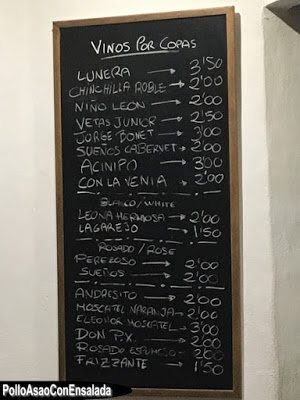 VINOS POR COPAS
LUNERA → 3'50
CHINCHILLA ROBLE → 2'00
NIÑO LEON → 2'00
VETAS JUNIOR → 2'50
JORGE BONET → 3'00
SUEÑOS CABERNET → 2'00
ACINIPO → 3'00
CON LA VENIA → 2'00
BLANCO/WHITE
LEONA HERMOSA → 2'00
LAGAREJO → 1'50
ROSADO/ROSE
PEREZOSO → 2'00
SUEÑOS → 2'00
ANDRESITO → 2'00
MOSCATEL NARANJA → 2'00
ELEONOR MOSCATEL → 3'00
DON P.X. → 2'00
ROSADO ESPUMOSO → 2'00
FRIZZANTE → 1'50
PolloAsaoConEnsalada